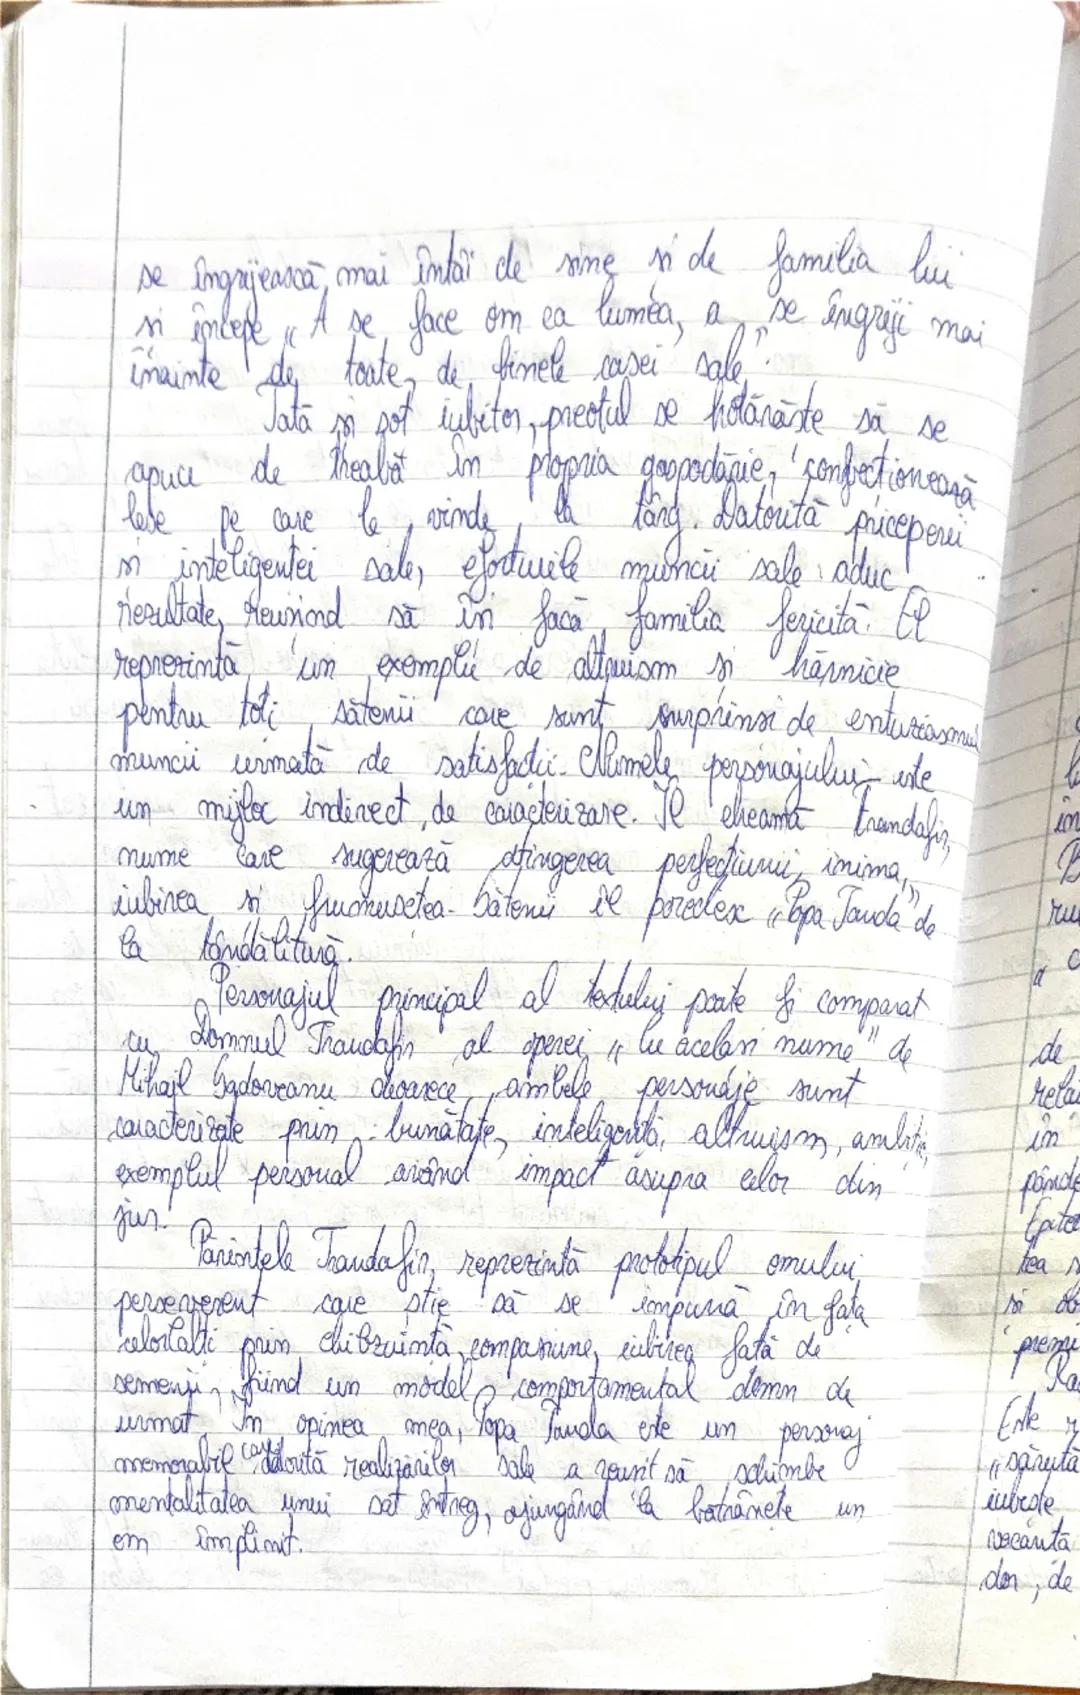 se îngrijească, mai întâi de sine și de familia lui
și începe „A se face om ca lumea, a se îngriji mai
înainte de, toate, de binele casei sale".
Tată și soț iubitor, preotul se hotărăște să se
apuce de treabă în propria gospodărie, confecționează
lese pe care le vinde la târg. Datorită priceperii
și inteligenței sale, eforturile muncii sale aduc
rezultate, reușind să îsi facă familia fericită. El
reprezintă un exemplu de altruism și hărnicie
pentru toți sătenii care sunt surprinsi de entuziasmul
muncii urmată de satisfacții. Numele personajului este
un mijloc indirect de caracterizare. Îl cheamă Trandafir,
nume care sugerează atingerea perfecțiunii, inima,
iubirea și frumusețea. Sătenii îl poreclesc „Popa Tanda" de
la tândălitură.
Personajul principal al textului poate fi comparat
cu Domnul Trandafir al operei „Cu același nume" de
Mihail Sadoveanu deoarece, ambele personaje sunt
caracterizate prin: bunătate, inteligență, altruism, ambiție,
exemplul personal având impact asupra celor din
jur.
Părintele Trandafir, reprezintă prototipul omului
perseverent care știe să se impună în fața
celorlalți prin chibzuință, compasiune, iubirea față de
semenii, fiind un model comportamental demn de
urmat. În opinea mea, Popa Tanda este un personaj
memorabil care datorită realizărilor sale a reusit să schimbe
mentalitatea unui sat întreg, ajungând la bătrânețe un
om împlinit.
de
în
Este
iubește
dor, de